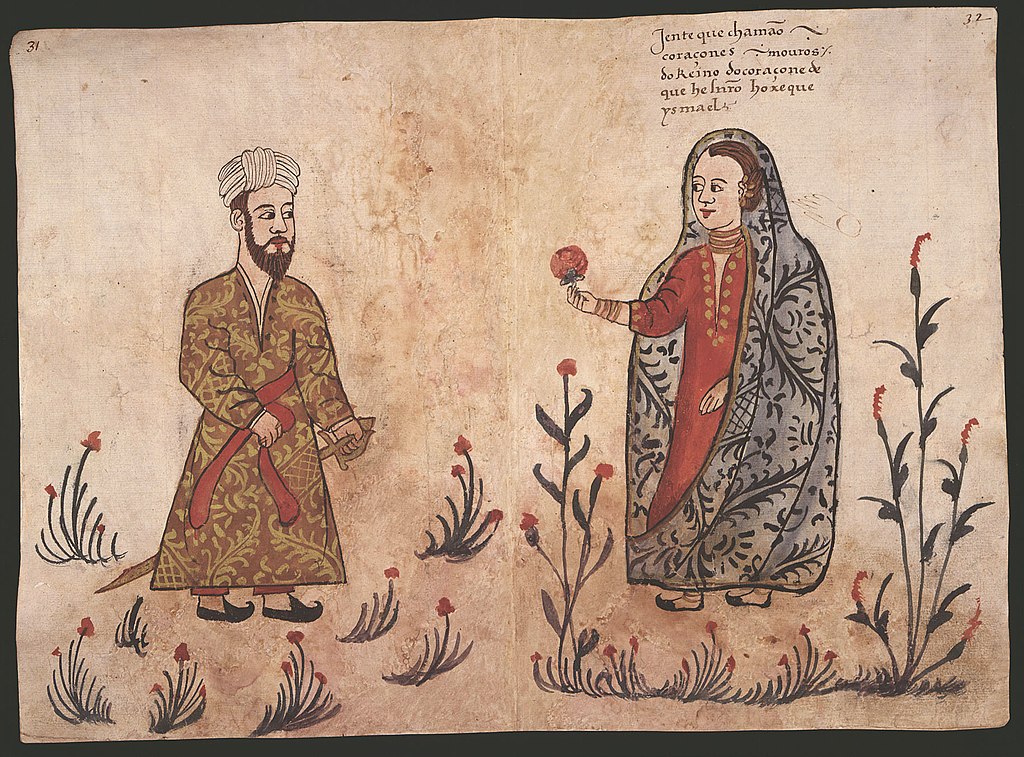 31
32
Jente que chamão
coraçones mouros
do Reino do coraçone de
que he snr̃o ho xeque
ysmael